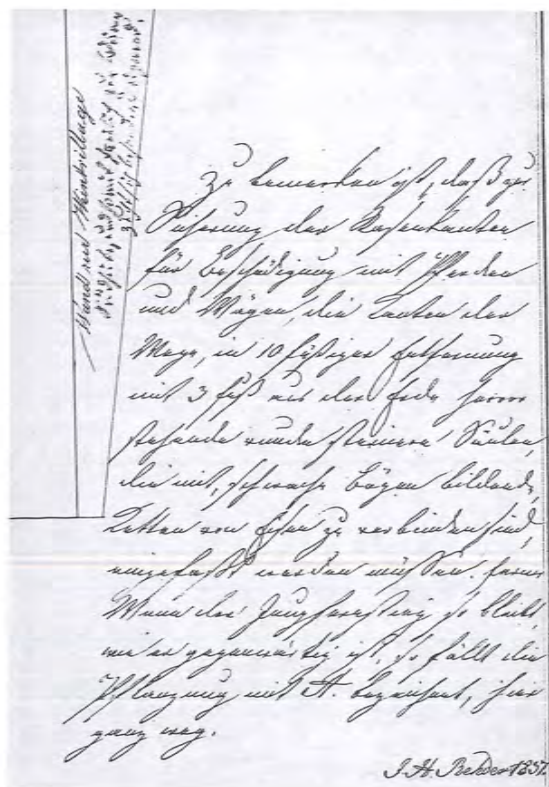 Zu bemerken ist, daß zur
Sicherung der Rasenkanten
für Beschädigung mit Pferden
und Wägen, die Kanten der
Wege, in 10 füßiger Entfernung
mit 3 fuß aus der Erde hervor
stehende runde steinere Säulen,
die mit, schwache Bögen bildend,
Ketten von Eisen zu verbinden sind,
eingefaßt werden müssen. ferner
Wenn der Jungfernstieg so bleibt,
wie er gegenwärtig ist, so fällt die
Pflanzung mit A. bezeichnet, hier
ganz weg.
J. H. Rehder 1837.
Wand